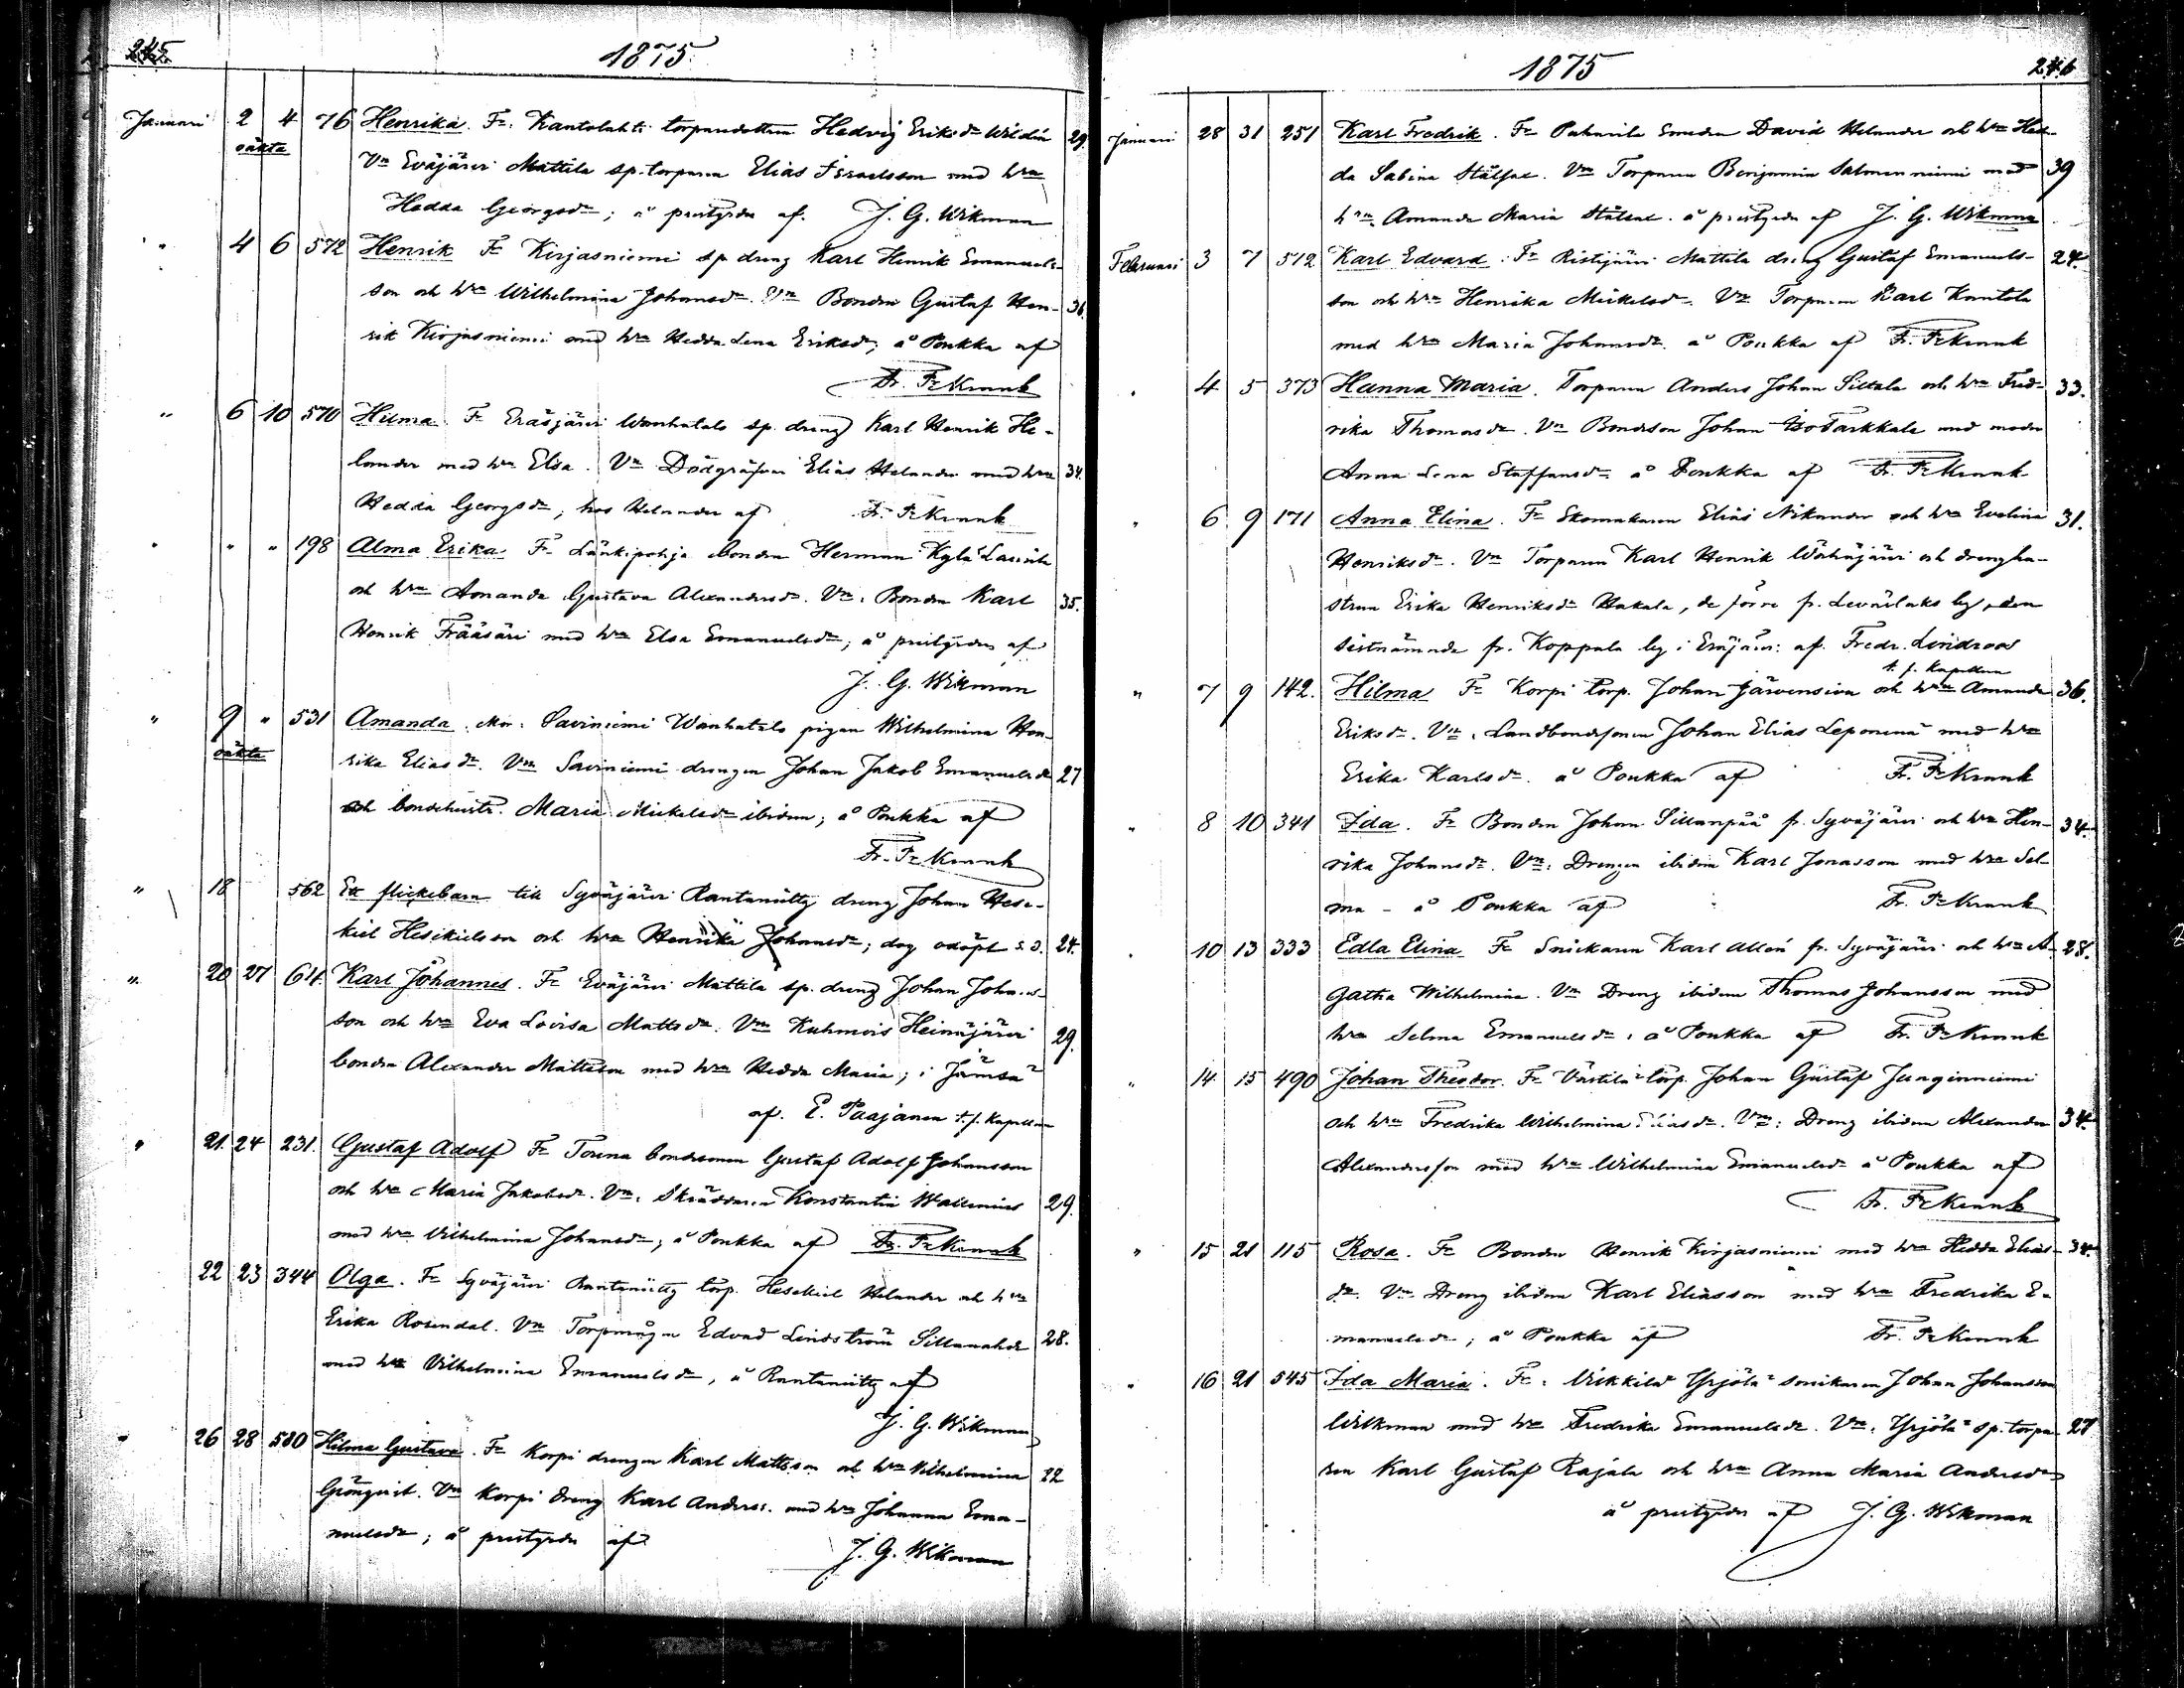 245
1875
Januari 2 4 76 Henrika. Fr. Kantolahti torparedottern Hedvig Eriksdr Widén 29.
oäkta
Vn Eväjärvi Mattila sp. torparen Elias Israelsson med hru
Hedda Georgsdr; å prestgården af. J. G. Wikman
" 4 6 572 Henrik Fr Kirjasniemi sp dreng Karl Henrik Emanuels-
son och hru Wilhelmina Johansdr. Vn Bonden Gustaf Hen- 36.
rik Kirjasniemi med hru Hedda Lena Eriksdr; å Ponkka af
Fr. Fr Krank
" 6 10 570 Hilma. Fr Eräsjärvi Wanhatalo sp. dreng Karl Henrik He-
lander med hru Elisa. Vn Dödgräfvaren Elias Helander med hru 34.
Hedda Georgsdr; hos Helander af Fr. Fr Krank
" " " 198 Alma Erika Fr. Länkipohja bonden Herman Kylä Laurila
och hru Amanda Gustava Alexandersdr. Vn: Bonden Karl 35.
Henrik Frääsäri med hru Elsa Emanuelsdr; å prestgården af
J. G. Wikman
" 9 " 531 Amanda. Mor: Saviniemi Wanhatalo pigan Wilhelmina Hen-
oäkta
rika Eliasdr. Vn Saviniemi drengen Johan Jakob Emanuelsdr 27
och bondehustr. Maria Mickelsdr ibidem; å Ponkka af
Fr. Fr Krank
" 18 562 Ett flickebarn till Syväjärvi Rantaniitty dreng Johan Hese-
kiel Hesekielsson och hru Henrika Johansdr; dog odöpt s. d. 24.
" 20 27 614. Karl Johannes. Fr Eväjärvi Mattila sp. dreng Johan Johans-
son och hru Eva Lovisa Mattsdr. Vn Kuhmois Heinäjärvi 29.
bonden Alexander Mattsson med hru Hedda Maria; i Jämsä
af. E. Paajanen t. f. Kapellan
" 21. 24 231. Gustaf Adolf Fr Touna bondsonen Gustaf Adolf Johansson
och hru Maria Jakobsdr. Vn: Skräddaren Konstantin Wallenius 29.
med hru Vilhelmina Johansdr; å Ponkka af Fr. Fr Krank
22 23 344 Olga. Fr Syväjärvi Rantaniitty torp. Hesekiel Helander och hru
Erika Rosendal. Vn Torpmågen Edvard Lindström Sillanahde 28.
med hru Vilhelmina Emanuelsdr, å Rantaniitty af
J. G. Wikman
" 26 28 580 Hilma Gustava. Fr Korpi drengen Karl Mattsson och hru Wilhelmina 22
Grönqvist. Vn Korpi dreng Karl Anderss. med hru Johanna Ema-
nuelsdr; å prestgården af J. G. Wikman
1875
246
Januari 28 31 251 Karl Fredrik. Fr Paharila Smeden David Helander och hru Hed-
da Sabina Stålfae. Vn Torparen Benjamin Salmenniemi med 39
hru Amanda Maria Stålfae. å prestgården af J. G. Wikman
Februari 3 7 512 Karl Edvard. Fr Ristijärvi Mattila dreng Gustaf Emanuels- 24.
son och hru Henrika Mickelsdr. Vn Torparen Karl Kantola
med hru Maria Johansdr å Ponkka af Fr. Fr Krank
" 4 5 373 Hanna Maria. Torparen Anders Johan Siltala och hru Fred- 33.
rika Thomasdr. Vn Bondeson Johan Iso Tarkkala med moder
Anna Lena Staffansdr å Ponkka af Fr. Fr Krank
" 6 9 171 Anna Elina. Fr Skomakaren Elias Nikander och hru Evelina 31.
Henriksdr. Vn Torparen Karl Henrik Wähäjärvi och drengha-
strun Erika Henriksdr Hakala, de förre fr. Leväslaks by, den
sistnämnde fr. Koppala by i Eräjärvi af. Fredr. Lindroos
t. f. Kapellan
" 7 9 142. Hilma Fr Korpi torp. Johan Järvensivu och hru Amanda 36.
Eriksdr. Vn: Landbondesonen Johan Elias Leponenä med hru
Erika Karlsdr. å Ponkka af Fr. Fr Krank
" 8 10 341 Ida. Fr Bonden Johan Sillanpää fr. Syväjärvi och hru Hen- 34.
rika Johansdr. Vn: Drengen ibidem Karl Jonasson med hru Sel-
ma - å Ponkka af Fr. Fr Krank
" 10 13 333 Edla Elina Fr Snickaren Karl Allén fr. Syväjärvi och hru A- 28.
gatha Wilhelmina. Vn Dreng ibidem Thomas Johansson med
hru Selma Emanuelsdr: å Ponkka af Fr. Fr Krank
" 14. 15 490 Johan Theodor. Fr Västilä torp. Johan Gustaf Junginniemi
och hru Fredrika Wilhelmina Eliasdr. Vn: Dreng ibidem Alexander 34.
Alexandersson med hru Wilhelmina Emanuelsdr å Ponkka af
Fr. Fr Krank
" 15 21 115 Rosa. Fr Bonden Henrik Kirjasniemi med hru Hedda Elias- 34.
dr. Vn Dreng ibidem Karl Eliasson med hru Fredrika E-
manuelsdr; å Ponkka af Fr. Fr Krank
" 16 21 545 Ida Maria. Fr: Uikkila Yrjölä snickaren Johan Johansson
Wilkman med hru Fredrika Emanuelsdr. Vn: Yrjölä sp. torpa- 27
ren Karl Gustaf Rajala och hru Anna Maria Andersdr
å prestgården af J. G. Wikman